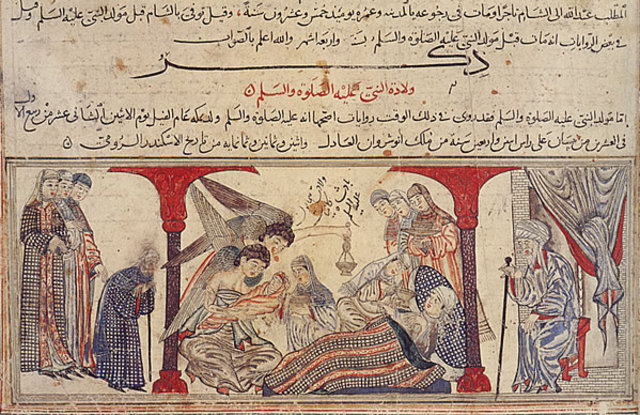 المطلب عبدالله الى الشام تاجرا ومات في رجوعه بالمدينه وعمره يومئذ خمس وعشرون سنة وقيل توفى بالشام قبل مولد النبى عليه السلم وقيل
في بعض الروايات انه مات قبل مولد النبي عليه الصلوة والسلم واربعة اشهر والله اعلم بالصواب
ذكر
ولادة النبى عليه الصلوة والسلم
اما مولد النبي عليه الصلوة والسلم فقد روى في ذلك الوقت روايات اصحها انه عليه الصلوة والسلم ولد بمكه عام الفيل يوم الاثنين الثانى عشر من ربيع الاول
في العشرين من نيسان على راس اثنين واربعين سنة من ملك انوشروان العادل واثنين وثمانين وثمانمايه من تاريخ الاسكندر الرومى